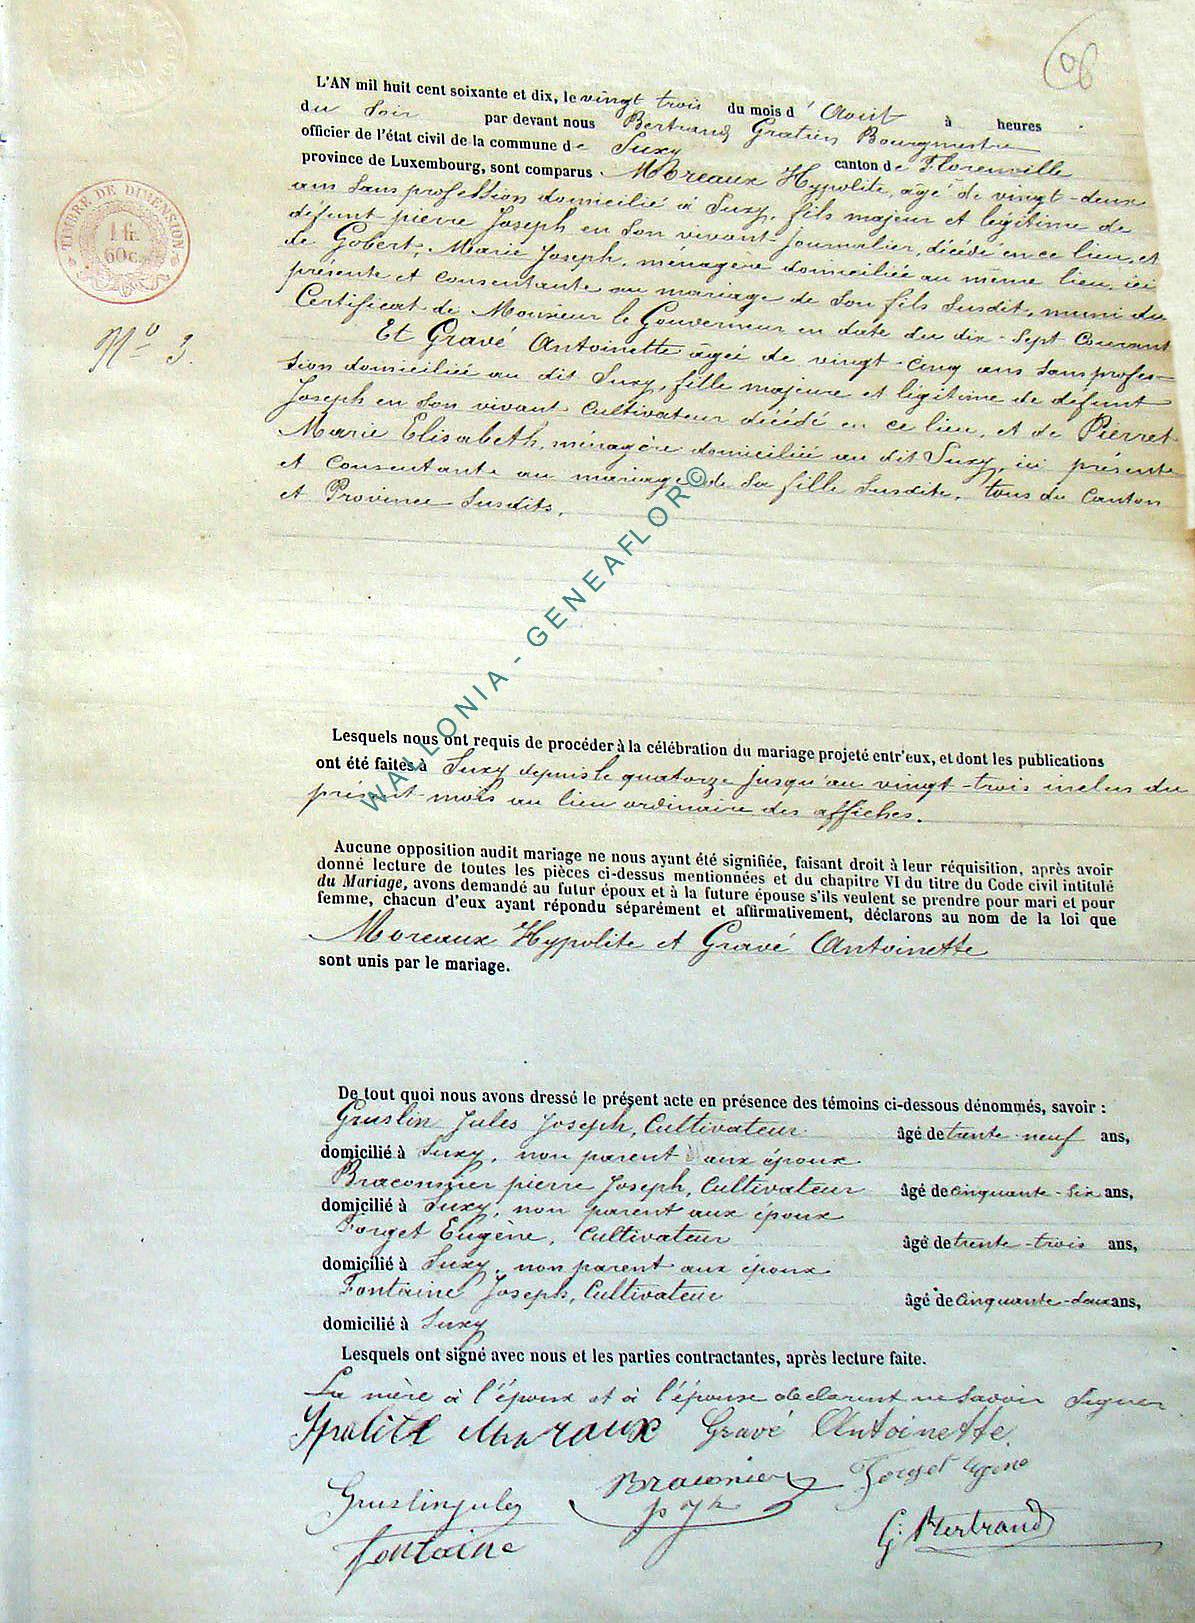 66
L'AN mil huit cent soixante et dix, le vingt trois du mois d'Aout à heures
du Soir par devant nous Bertrand Gratien Bourgmestre
officier de l'état civil de la commune de Suxy canton de Florenville
province de Luxembourg, sont comparus Moreaux Hypolite, âgé de vingt-deux
ans sans profession domicilié à Suxy, fils majeur et légitime de
défunt pierre Joseph en son vivant journalier, décédé en ce lieu, et
de Gobert, Marie Joseph, ménagère domiciliée au même lieu, ici
présente et consentante au mariage de son fils susdit, muni du
Certificat de Monsieur le Gouverneur en date du dix-Sept Courant
Et Gravé Antoinette âgée de vingt-cinq ans sans profes=
sion domiciliée au dit Suxy, fille majeure et légitime de défunt
Joseph en son vivant cultivateur décédé en ce lieu, et de Pierret
Marie Elisabeth, ménagère domiciliée au dit Suxy, ici présente
et consentante au mariage de sa fille susdite, tous du Canton
et Province susdits.
TIMBRE DE DIMENSION
1 fr.
60 c.
No 3.
WALLONIA - GENEAFLOR©
Lesquels nous ont requis de procéder à la célébration du mariage projeté entr'eux, et dont les publications
ont été faites à Suxy depuis le quatorze jusqu'au vingt-trois inclus du
présent mois au lieu ordinaire des affiches.
Aucune opposition audit mariage ne nous ayant été signifiée, faisant droit à leur réquisition, après avoir
donné lecture de toutes les pièces ci-dessus mentionnées et du chapitre VI du titre du Code civil intitulé
du Mariage, avons demandé au futur époux et à la future épouse s'ils veulent se prendre pour mari et pour
femme, chacun d'eux ayant répondu séparément et affirmativement, déclarons au nom de la loi que
Moreaux Hypolite et Gravé Antoinette
sont unis par le mariage.
De tout quoi nous avons dressé le présent acte en présence des témoins ci-dessous dénommés, savoir :
Gruslin Jules Joseph, Cultivateur âgé de trente-neuf ans,
domicilié à Suxy, non parent aux époux
Braconnier pierre Joseph, Cultivateur âgé de cinquante-six ans,
domicilié à Suxy, non parent aux époux
Forget Eugène, Cultivateur âgé de trente-trois ans,
domicilié à Suxy, non parent aux époux
Fontaine Joseph, Cultivateur âgé de Cinquante-deux ans,
domicilié à Suxy
Lesquels ont signé avec nous et les parties contractantes, après lecture faite.
La mère à l'époux et à l'épouse declarent ne Savoir Signer
Ypolite Moraux Gravé Antoinette
Gruslin jules Braconnier p jh Forget Egène
fontaine G. Bertrand